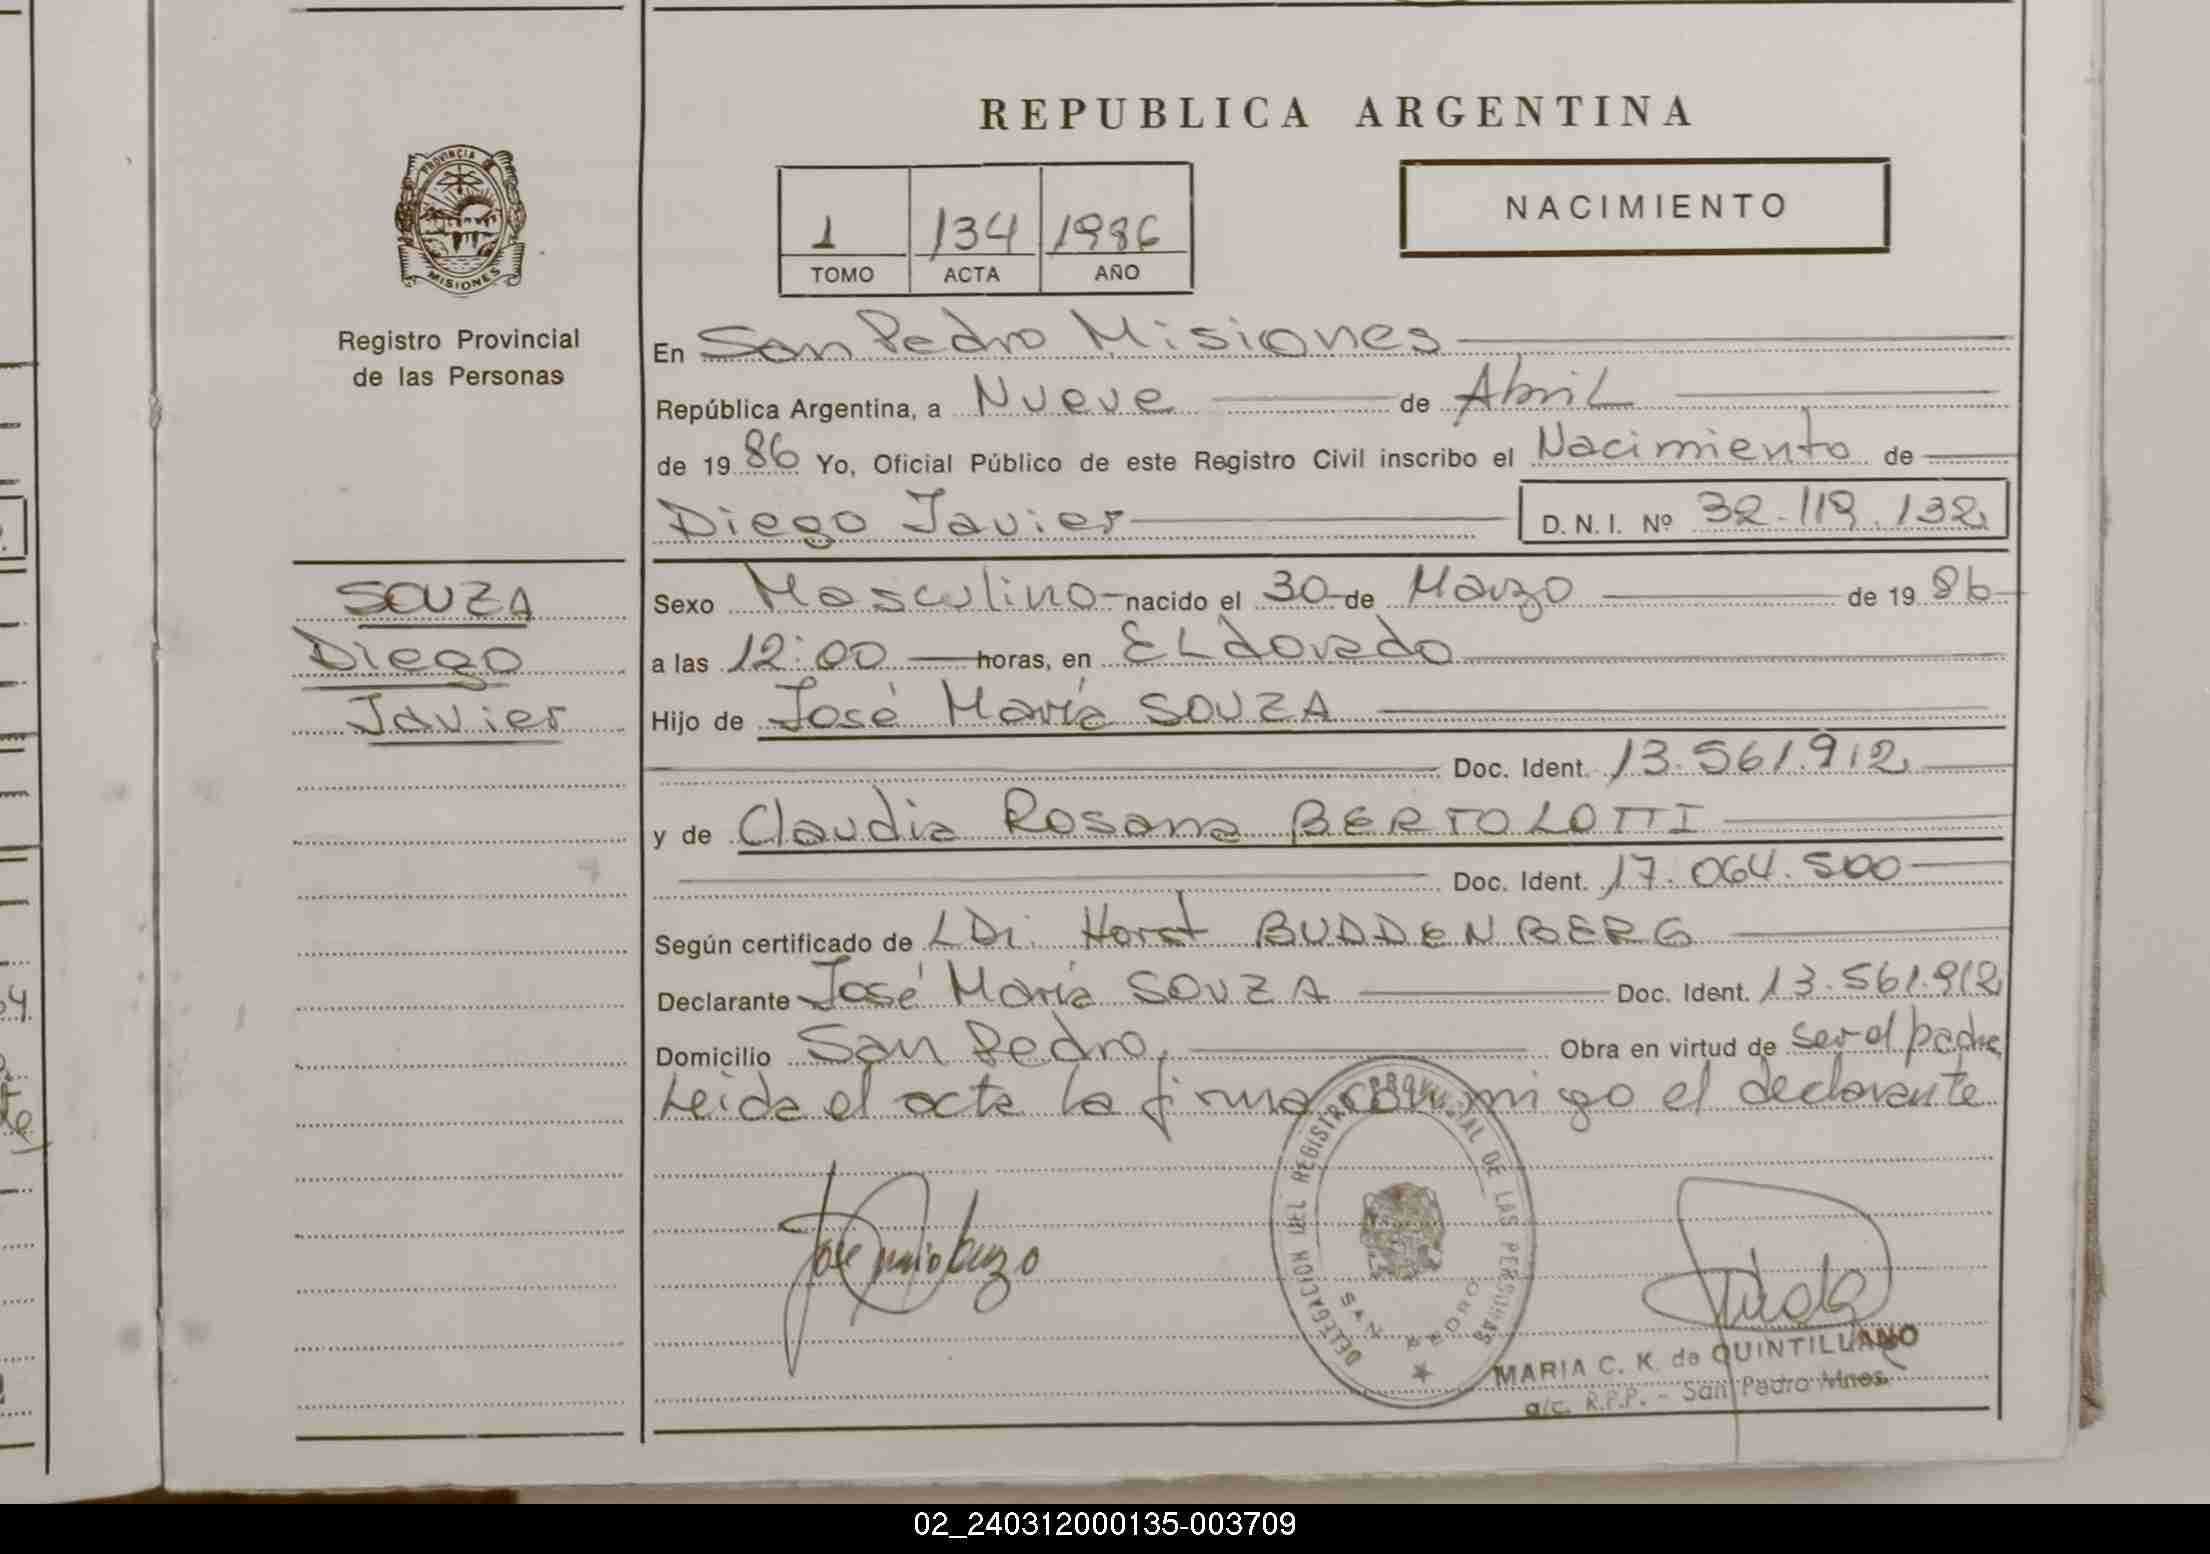 REPUBLICA ARGENTINA
PROVINCIA DE MISIONES
Registro Provincial
de las Personas
1 134 1986
TOMO ACTA AÑO
NACIMIENTO
En San Pedro Misiones
República Argentina, a Nueve de Abril
de 1986 Yo, Oficial Público de este Registro Civil inscribo el Nacimiento de
Diego Javier D. N. I. Nº 32.119.132
SOUZA
Diego
Javier
Sexo Masculino nacido el 30 de Marzo de 1986
a las 12:00 horas, en ELdorado
Hijo de José María SOUZA
Doc. Ident. 13.561.912
y de Claudia Rosana BERTOLOTTI
Doc. Ident. 17.064.500
Según certificado de LDi Horst BUDDENBERG
Declarante José María SOUZA Doc. Ident. 13.561.912
Domicilio San Pedro, Obra en virtud de ser el padre
Leida el acta la firma conmigo el declarante
DELEGACION DEL REGISTRO PROVINCIAL DE LAS PERSONAS
SAN PEDRO
MARIA C. K. de QUINTILLANO
a/c. R.P.P. - San Pedro Mnes.
02_240312000135-003709